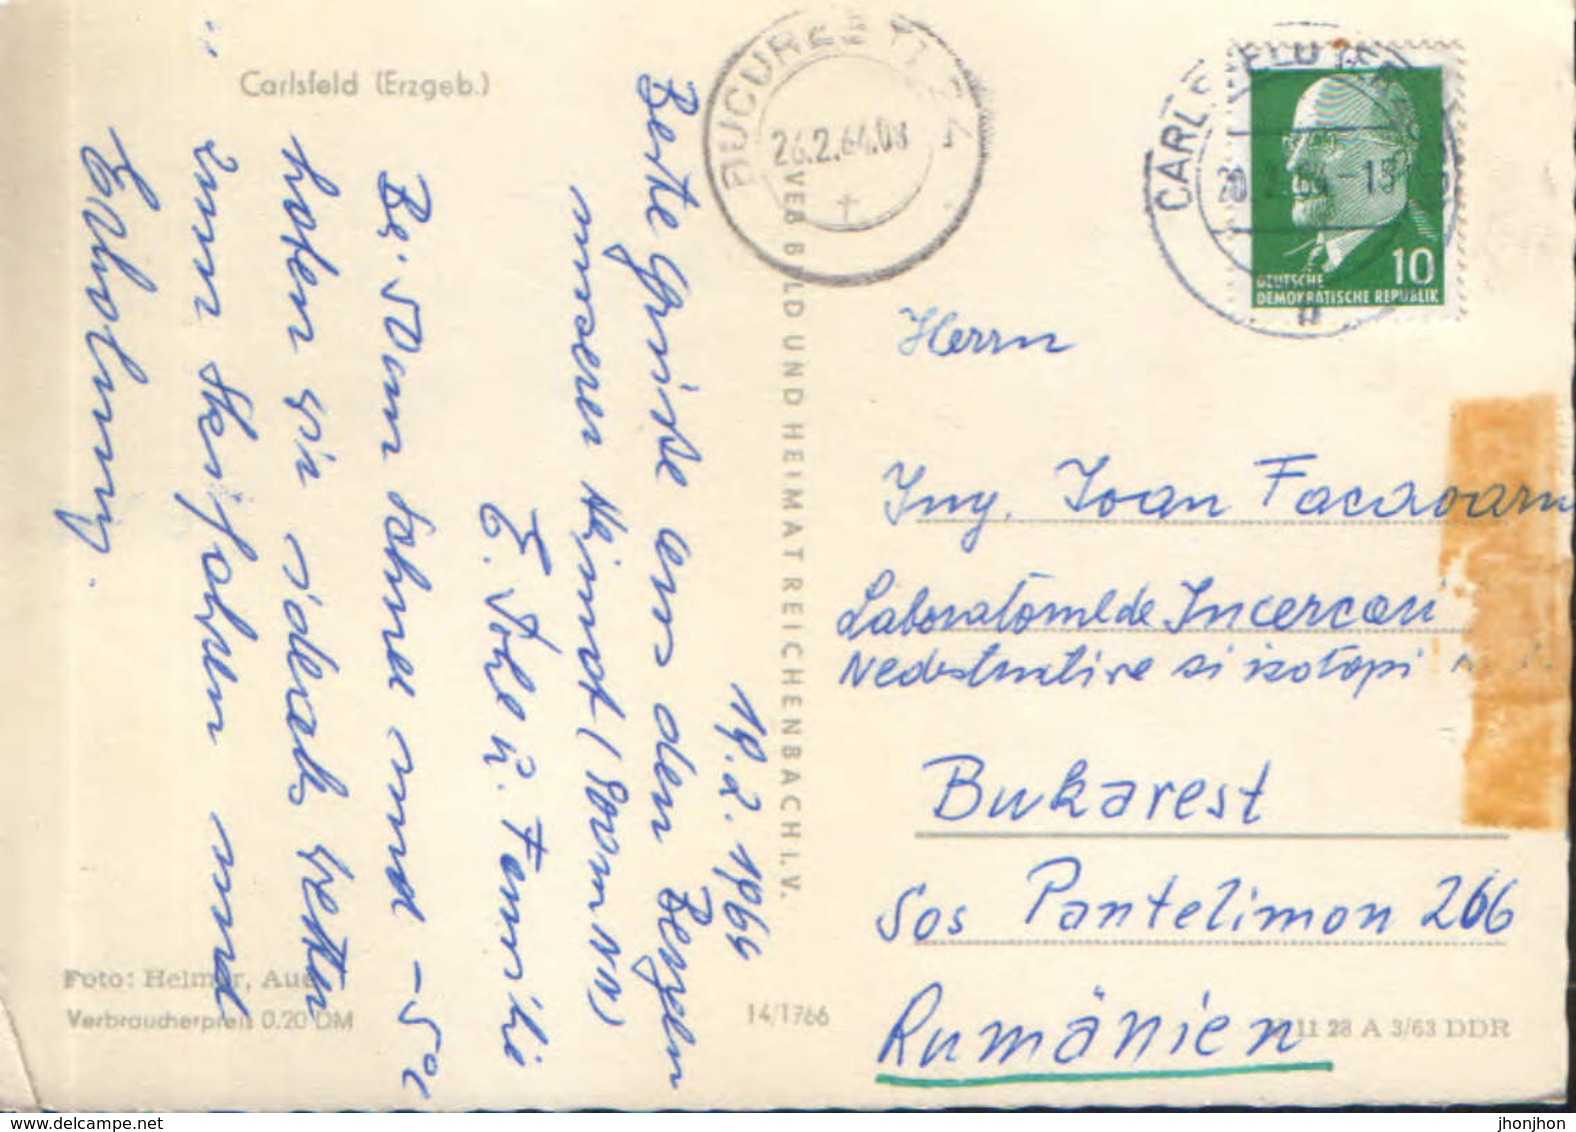 Carlsfeld (Erzgeb.)
19.2.1964
Beste Grüße aus den Bergen
unserer Heimat (900m NN)
E. Vohl u. Familie
Bei 50 cm Schnee und -5°C
haben wir ideales Wetter
zum Skifahren und
Erholung.
Foto: Helmer, Aue
Verbraucherpreis 0.20 DM
14/1766
VEB BILD UND HEIMAT REICHENBACH I. V.
BUCUREȘTI 24
26.2.64.08
CARLSFELD
-13
10
DEUTSCHE
DEMOKRATISCHE REPUBLIK
Herrn
Ing. Ioan Facaoaru
Laboratorul de Incercari
Nedestructive si izotopi
Bukarest
Sos Pantelimon 266
Rumänien
11 28 A 3/63 DDR
delcampe.net
jhonjhon